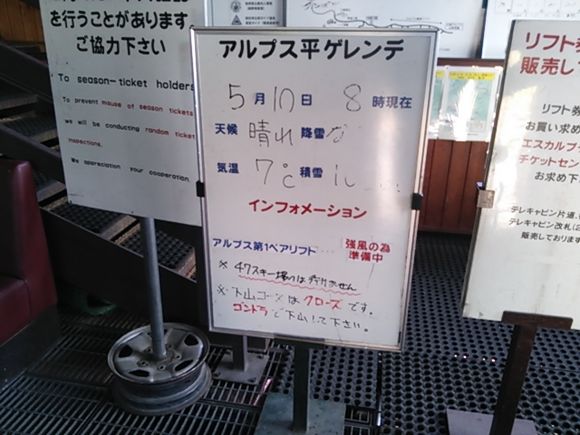 を行うことがあります
ご協力下さい
To season-ticket holders
To prevent misuse of season tickets
we will be conducting random ticket
inspections.
We appreciate your cooperation.
アルプス平ゲレンデ
5月10日 8時現在
天候 晴れ 降雪 な
気温 7℃ 積雪
インフォメーション
アルプス第1ペアリフト
強風の為
準備中
※47スキー場へは行けません
※下山コースはクローズです。
ゴンドラで下山して下さい。
リフト券
販売して
リフト券
お買い求め
エスカルプラ
チケットセン
お求め下
テレキャビン片道
テレキャビン改札
販売しております